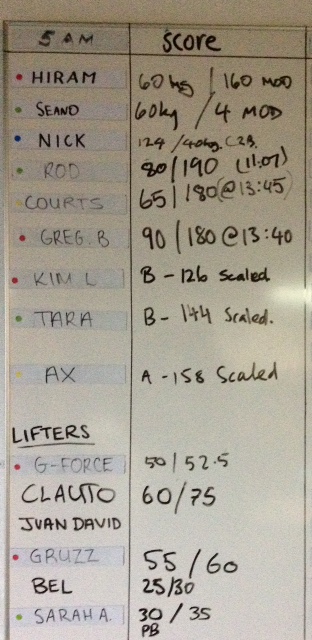 5 AM Score
HIRAM 60kg / 160 MOD
SEANO 60kg / 4 MOD
NICK 124 / 40kg
ROD 80/190 (11:07)
COURTS 65/180(@13:45)
GREG.B 90/180@13:40
KIM L B - 126 scaled
TARA B - 144 Scaled.
AX A - 158 Scaled
LIFTERS
G-FORCE 50/52.5
CLAUTO 60/75
JUAN DAVID
GRUZZ 55/60
BEL 25/30
SARAH A. 30/35
PB